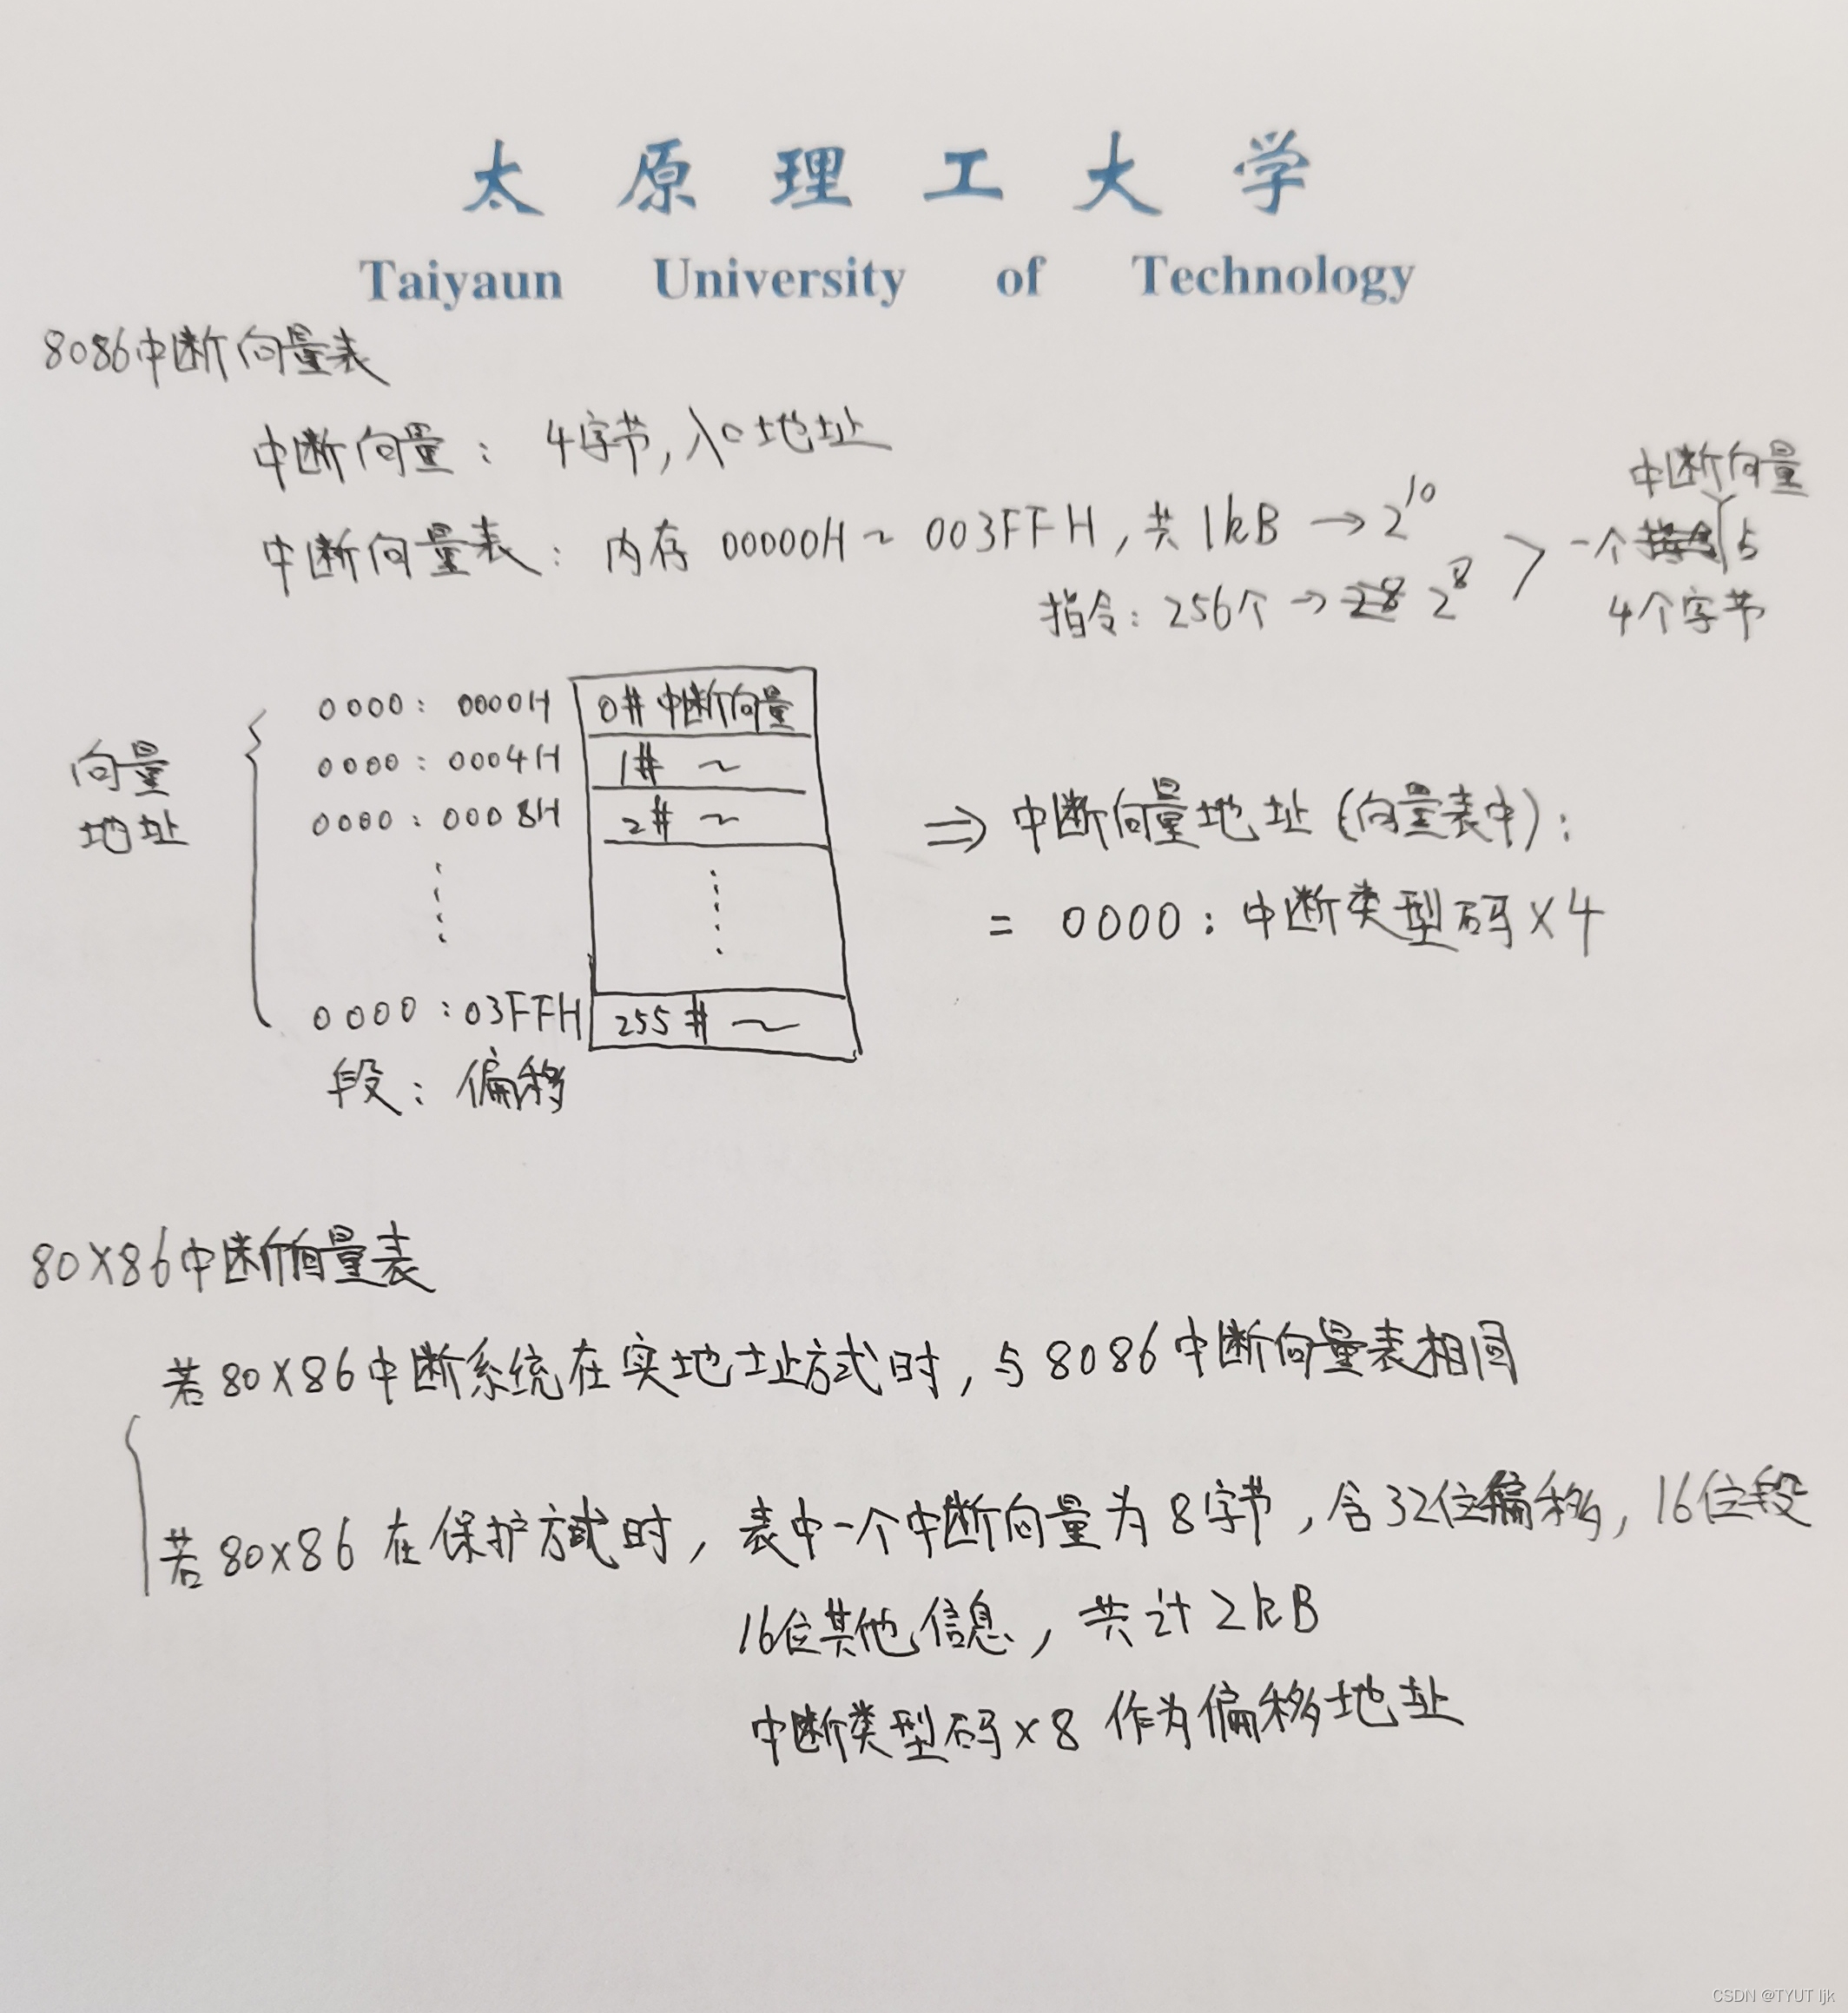 太原理工大学
Taiyaun University of Technology
8086中断向量表
中断向量：4字节，入口地址
中断向量表：内存 00000H ~ 003FFH，共1kB → 2^10
指令：256个 → 2^8
中断向量
一个 占
4个字节
向量
地址
0000：0000H 0# 中断向量
0000：0004H 1# ~
0000：0008H 2# ~
0000：03FFH 255# ~
段：偏移
⇒ 中断向量地址（向量表中）：
= 0000：中断类型码×4
80X86中断向量表
若80X86中断系统在实地址方式时，与8086中断向量表相同
若80X86在保护方式时，表中一个中断向量为8字节，含32位偏移，16位段
16位其他信息，共计2kB
中断类型码×8 作为偏移地址
CSDN @TYUT ljk